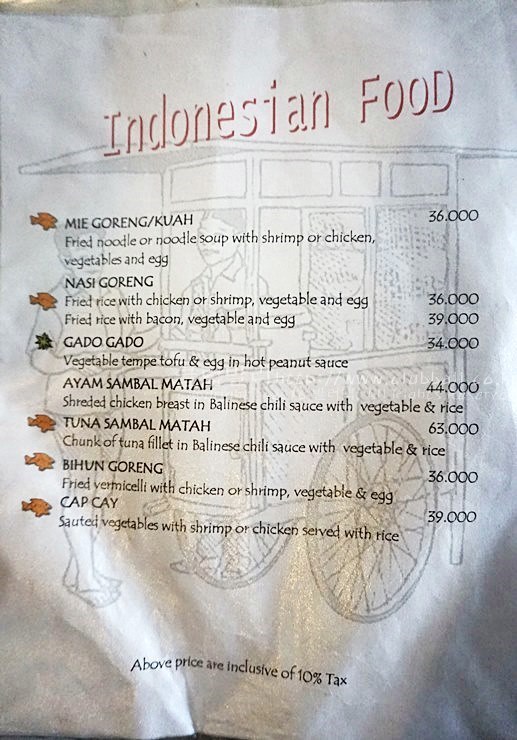 Indonesian Food
MIE GORENG/KUAH 36.000
Fried noodle or noodle soup with shrimp or chicken,
vegetables and egg
NASI GORENG
Fried rice with chicken or shrimp, vegetable and egg 36.000
Fried rice with bacon, vegetable and egg 39.000
GADO GADO 34.000
Vegetable tempe tofu & egg in hot peanut sauce
AYAM SAMBAL MATAH 44.000
Shreded chicken breast in Balinese chili sauce with vegetable & rice
TUNA SAMBAL MATAH 63.000
Chunk of tuna fillet in Balinese chili sauce with vegetable & rice
BIHUN GORENG 36.000
Fried vermicelli with chicken or shrimp, vegetable & egg
CAP CAY 39.000
Sauted vegetables with shrimp or chicken served with rice
Above price are inclusive of 10% Tax